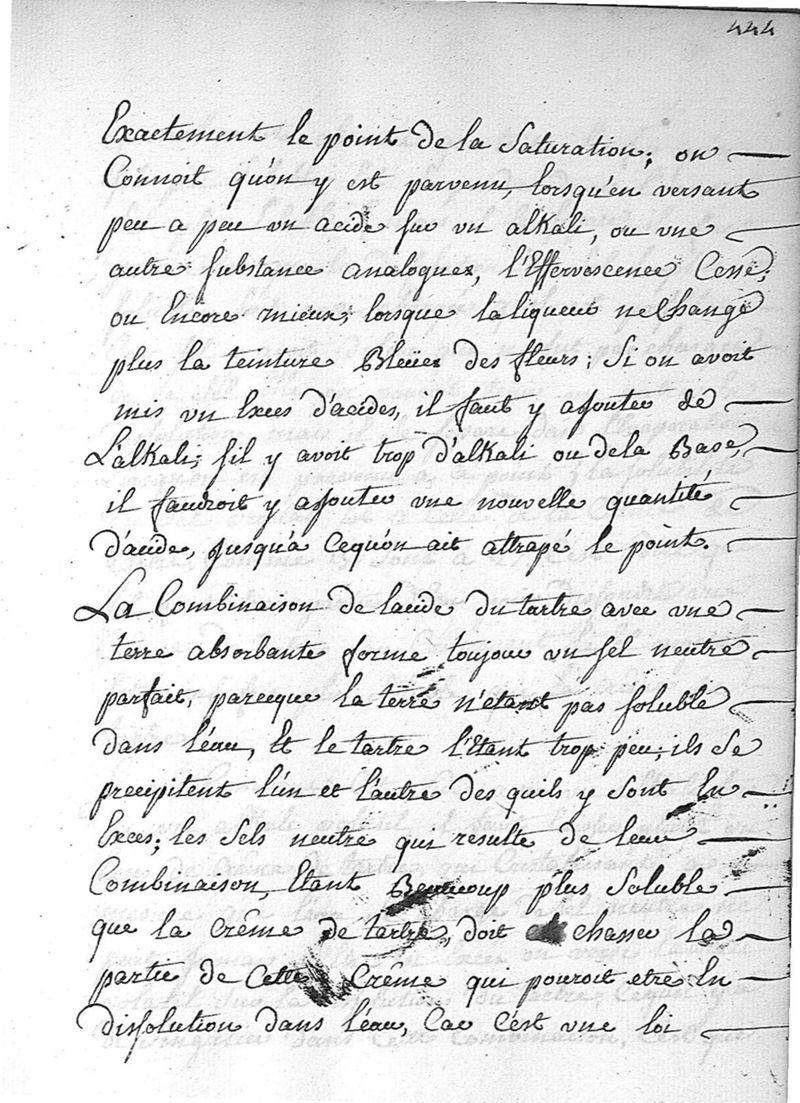 444
Exactement le point de la Saturation; on
Connoit qu'on y est parvenu, lorsqu'en versant
peu a peu un acide sur un alkali, ou une
autre substance analogues, l'Effervescence Cesse;
ou Encore mieux; lorsque la liqueur ne Change
plus la teinture Bleües des fleurs; Si on avoit
mis un Exces d'acides, il faut y ajouter de
L'alkali; s'il y avoit trop d'alkali ou de la Base,
il faudroit y ajouter une nouvelle quantité
d'acide, jusqu'a cequ'on ait attrapé le point.
La Combinaison de lacide du tartre avec une
terre absorbante forme toujour un sel neutre
parfait, parceque la terre n'etant pas soluble
dans léau, Et le tartre l'Etant trop peu; ils Se
precipitent l'un et l'autre des quils y sont En
Exces; les Sels neutre qui resulte de leur
Combinaison, Etant Beaucoup plus Soluble
que la Crême de tartre, doit chasser la
partie de Cette Crême qui pouroit etre En
dissolution dans léau, Car C'est une loi